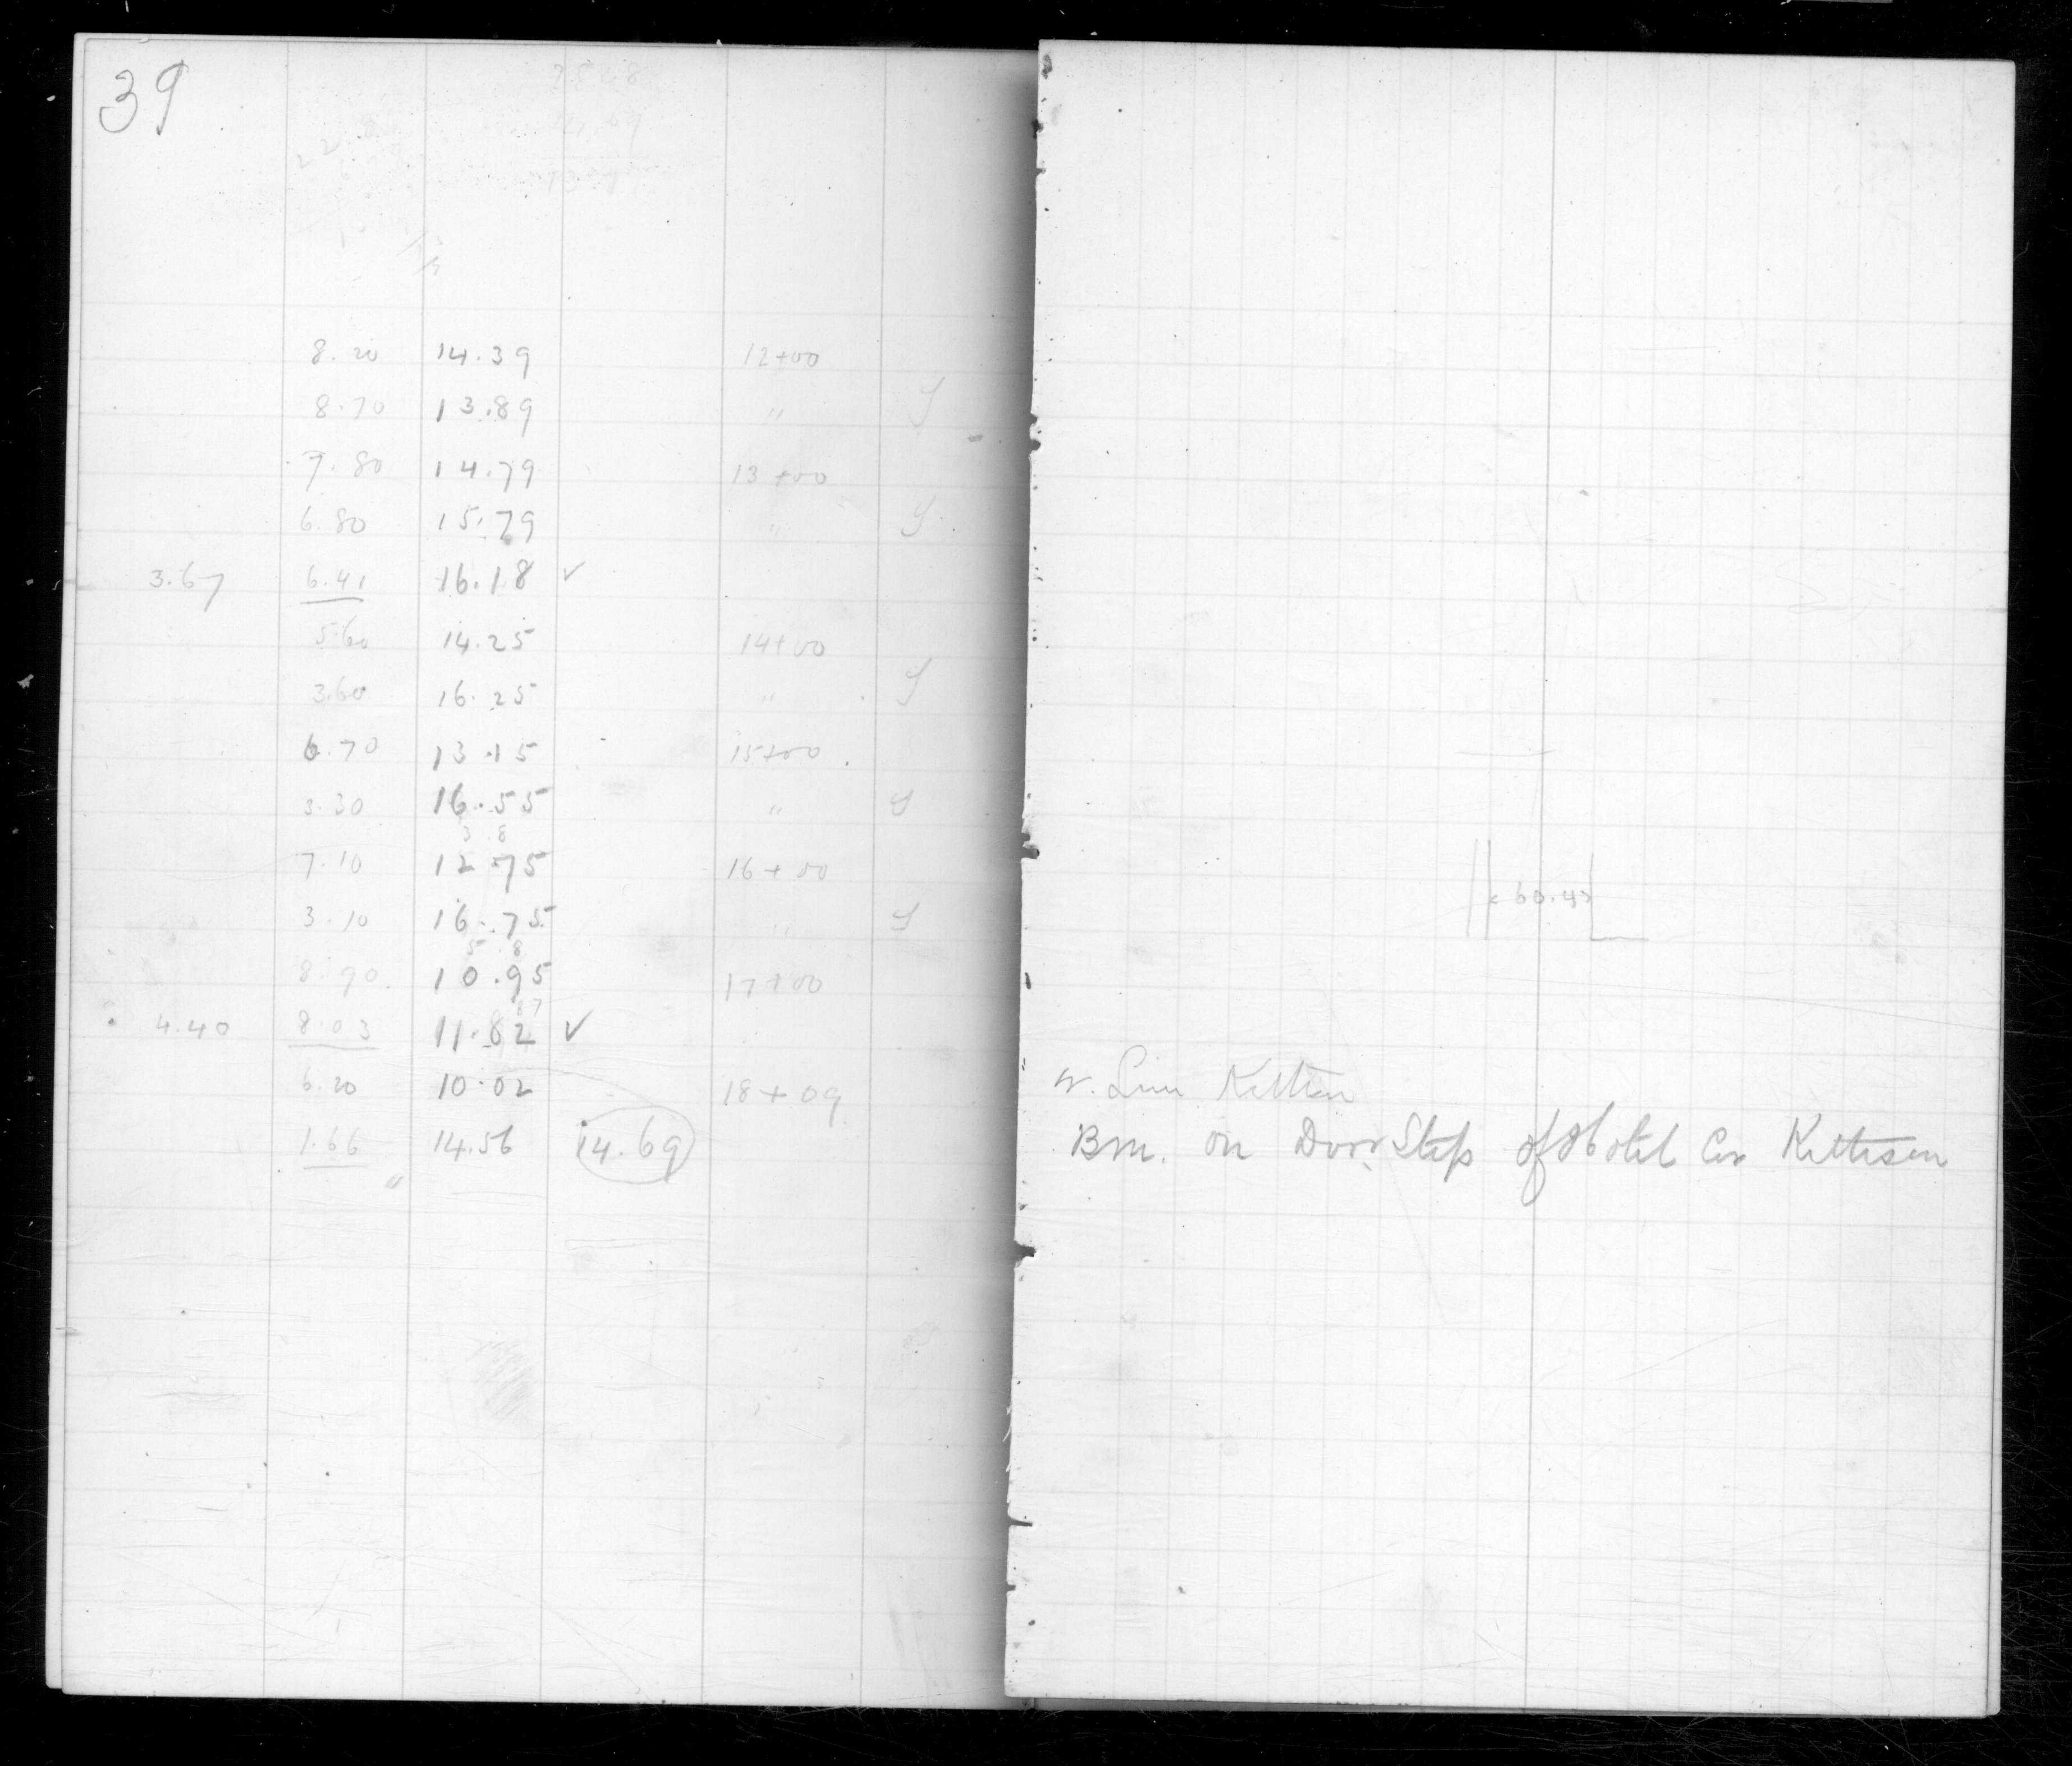 39
8.20 14.39 12+00
8.70 13.89 "
7.80 14.79 13+00
6.80 15.79 "
3.67 6.41 16.18 ✓
5.60 14.25 14+00
3.60 16.25 "
6.70 13.15 15+00
3.30 16.55 "
3 8
7.10 12.75 16+00
3.10 16.75 "
5 8
8.90 10.95 17+00
4.40 8.03 11.82 ✓
6.20 10.02 18+09
1.66 14.56 14.69
60.43
W. Line
BM. on Door Step of Hotel Cor